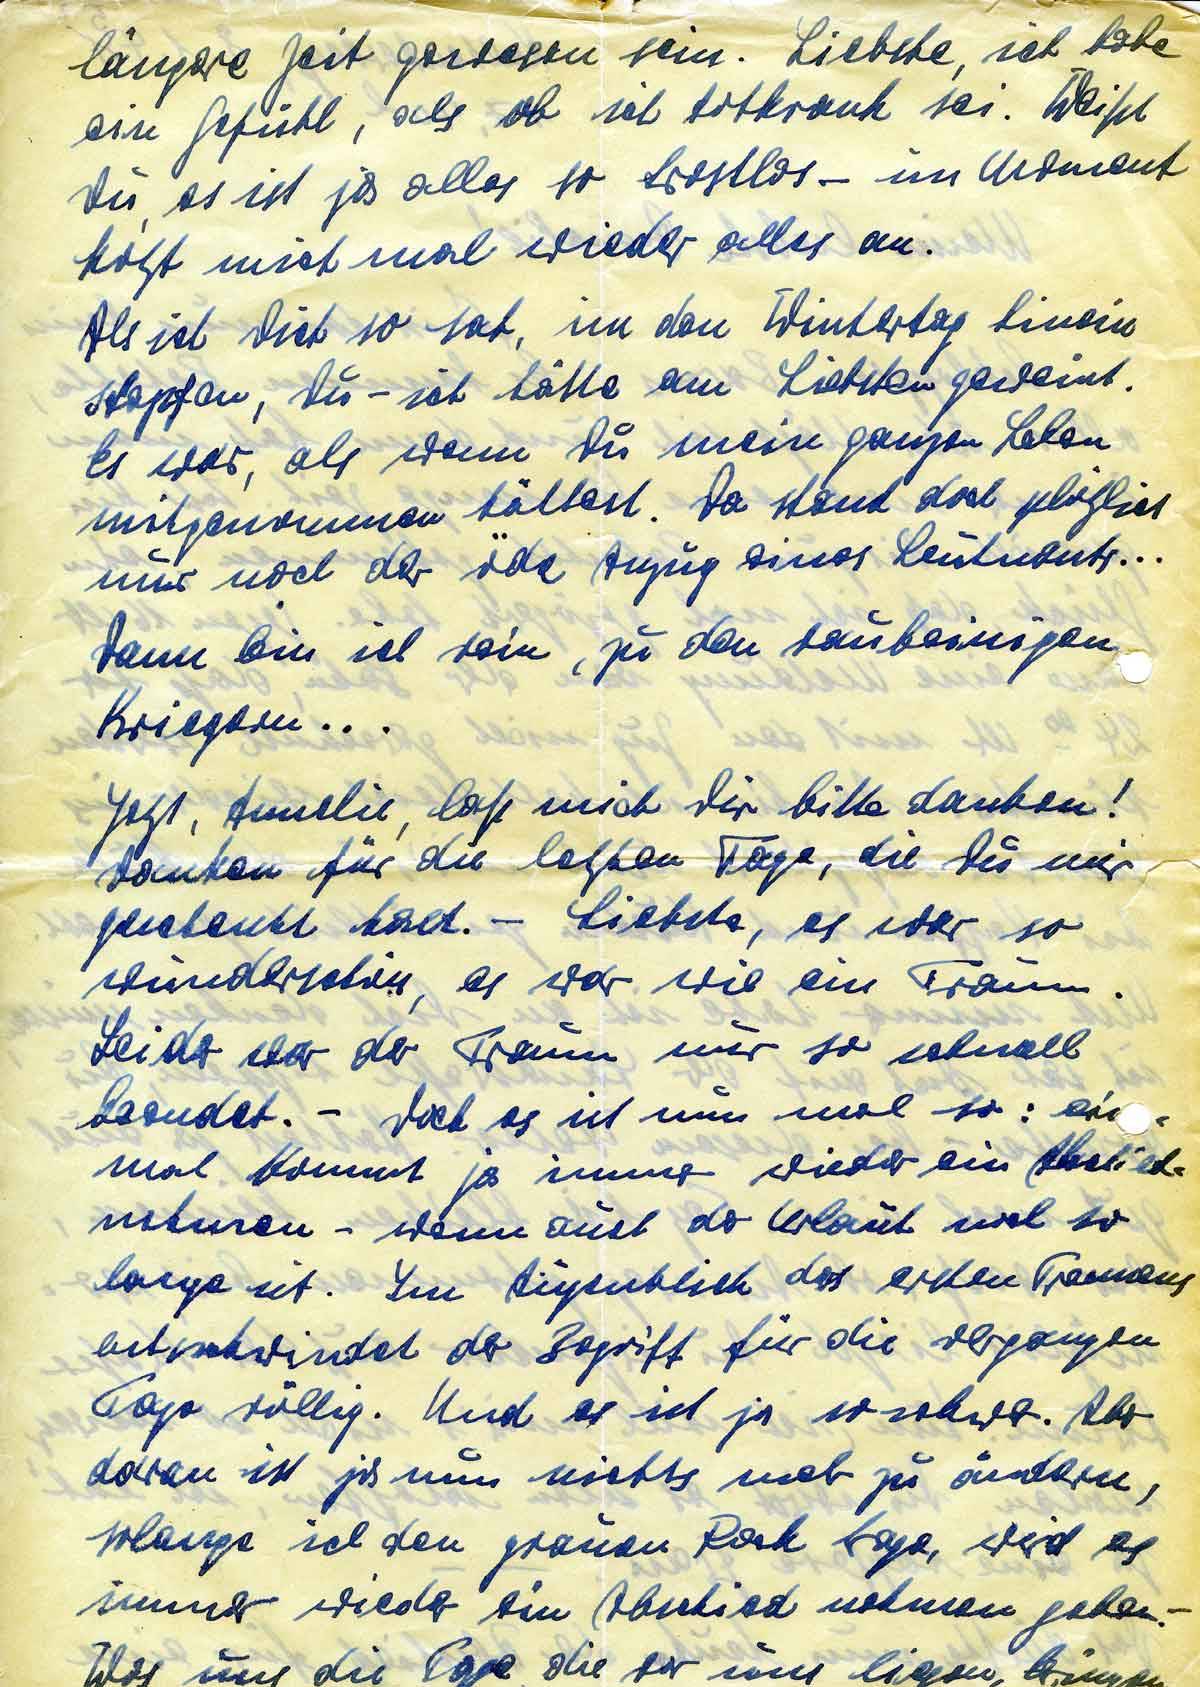 längere Zeit gewesen sein. Liebste, ich habe
ein Gefühl, als ob ich totkrank sei. Weißt
Du, es ist ja alles so trostlos – im Moment
kotzt mich mal wieder alles an.
Als ich Dich so sah, in den Wintertag hinein
stapfen, Du – ich hätte am Liebsten geweint.
Es war, als wenn Du mein ganzen Leben
mitgenommen hättest. Da stand doch plötzlich
nur noch der öde Anzug eines Leutnants...
Dann bin ich rein, zu den raubeinigen
Kriegern...
Jetzt, Annelie, laß mich Dir bitte danken!
Danken für die letzten Tage, die Du mir
geschenkt hast. – Liebste, es war so
wunderschön, es war wie ein Traum.
Leider war der Traum nur so schnell
beendet. – Doch es ist nun mal so: ein-
mal kommt ja immer wieder ein Abschied-
nehmen – wenn auch der Urlaub noch so
lange ist. Im Augenblick des ersten Trennens
entschwindet der Begriff für die vergangen
Tage völlig. Und es ist ja so schwer. Aber
daran ist ja nun nichts mehr zu ändern,
solange ich den grauen Rock trage, wird es
immer wieder ein Abschied nehmen geben. –
Was uns die Tage, die vor uns liegen, bringen